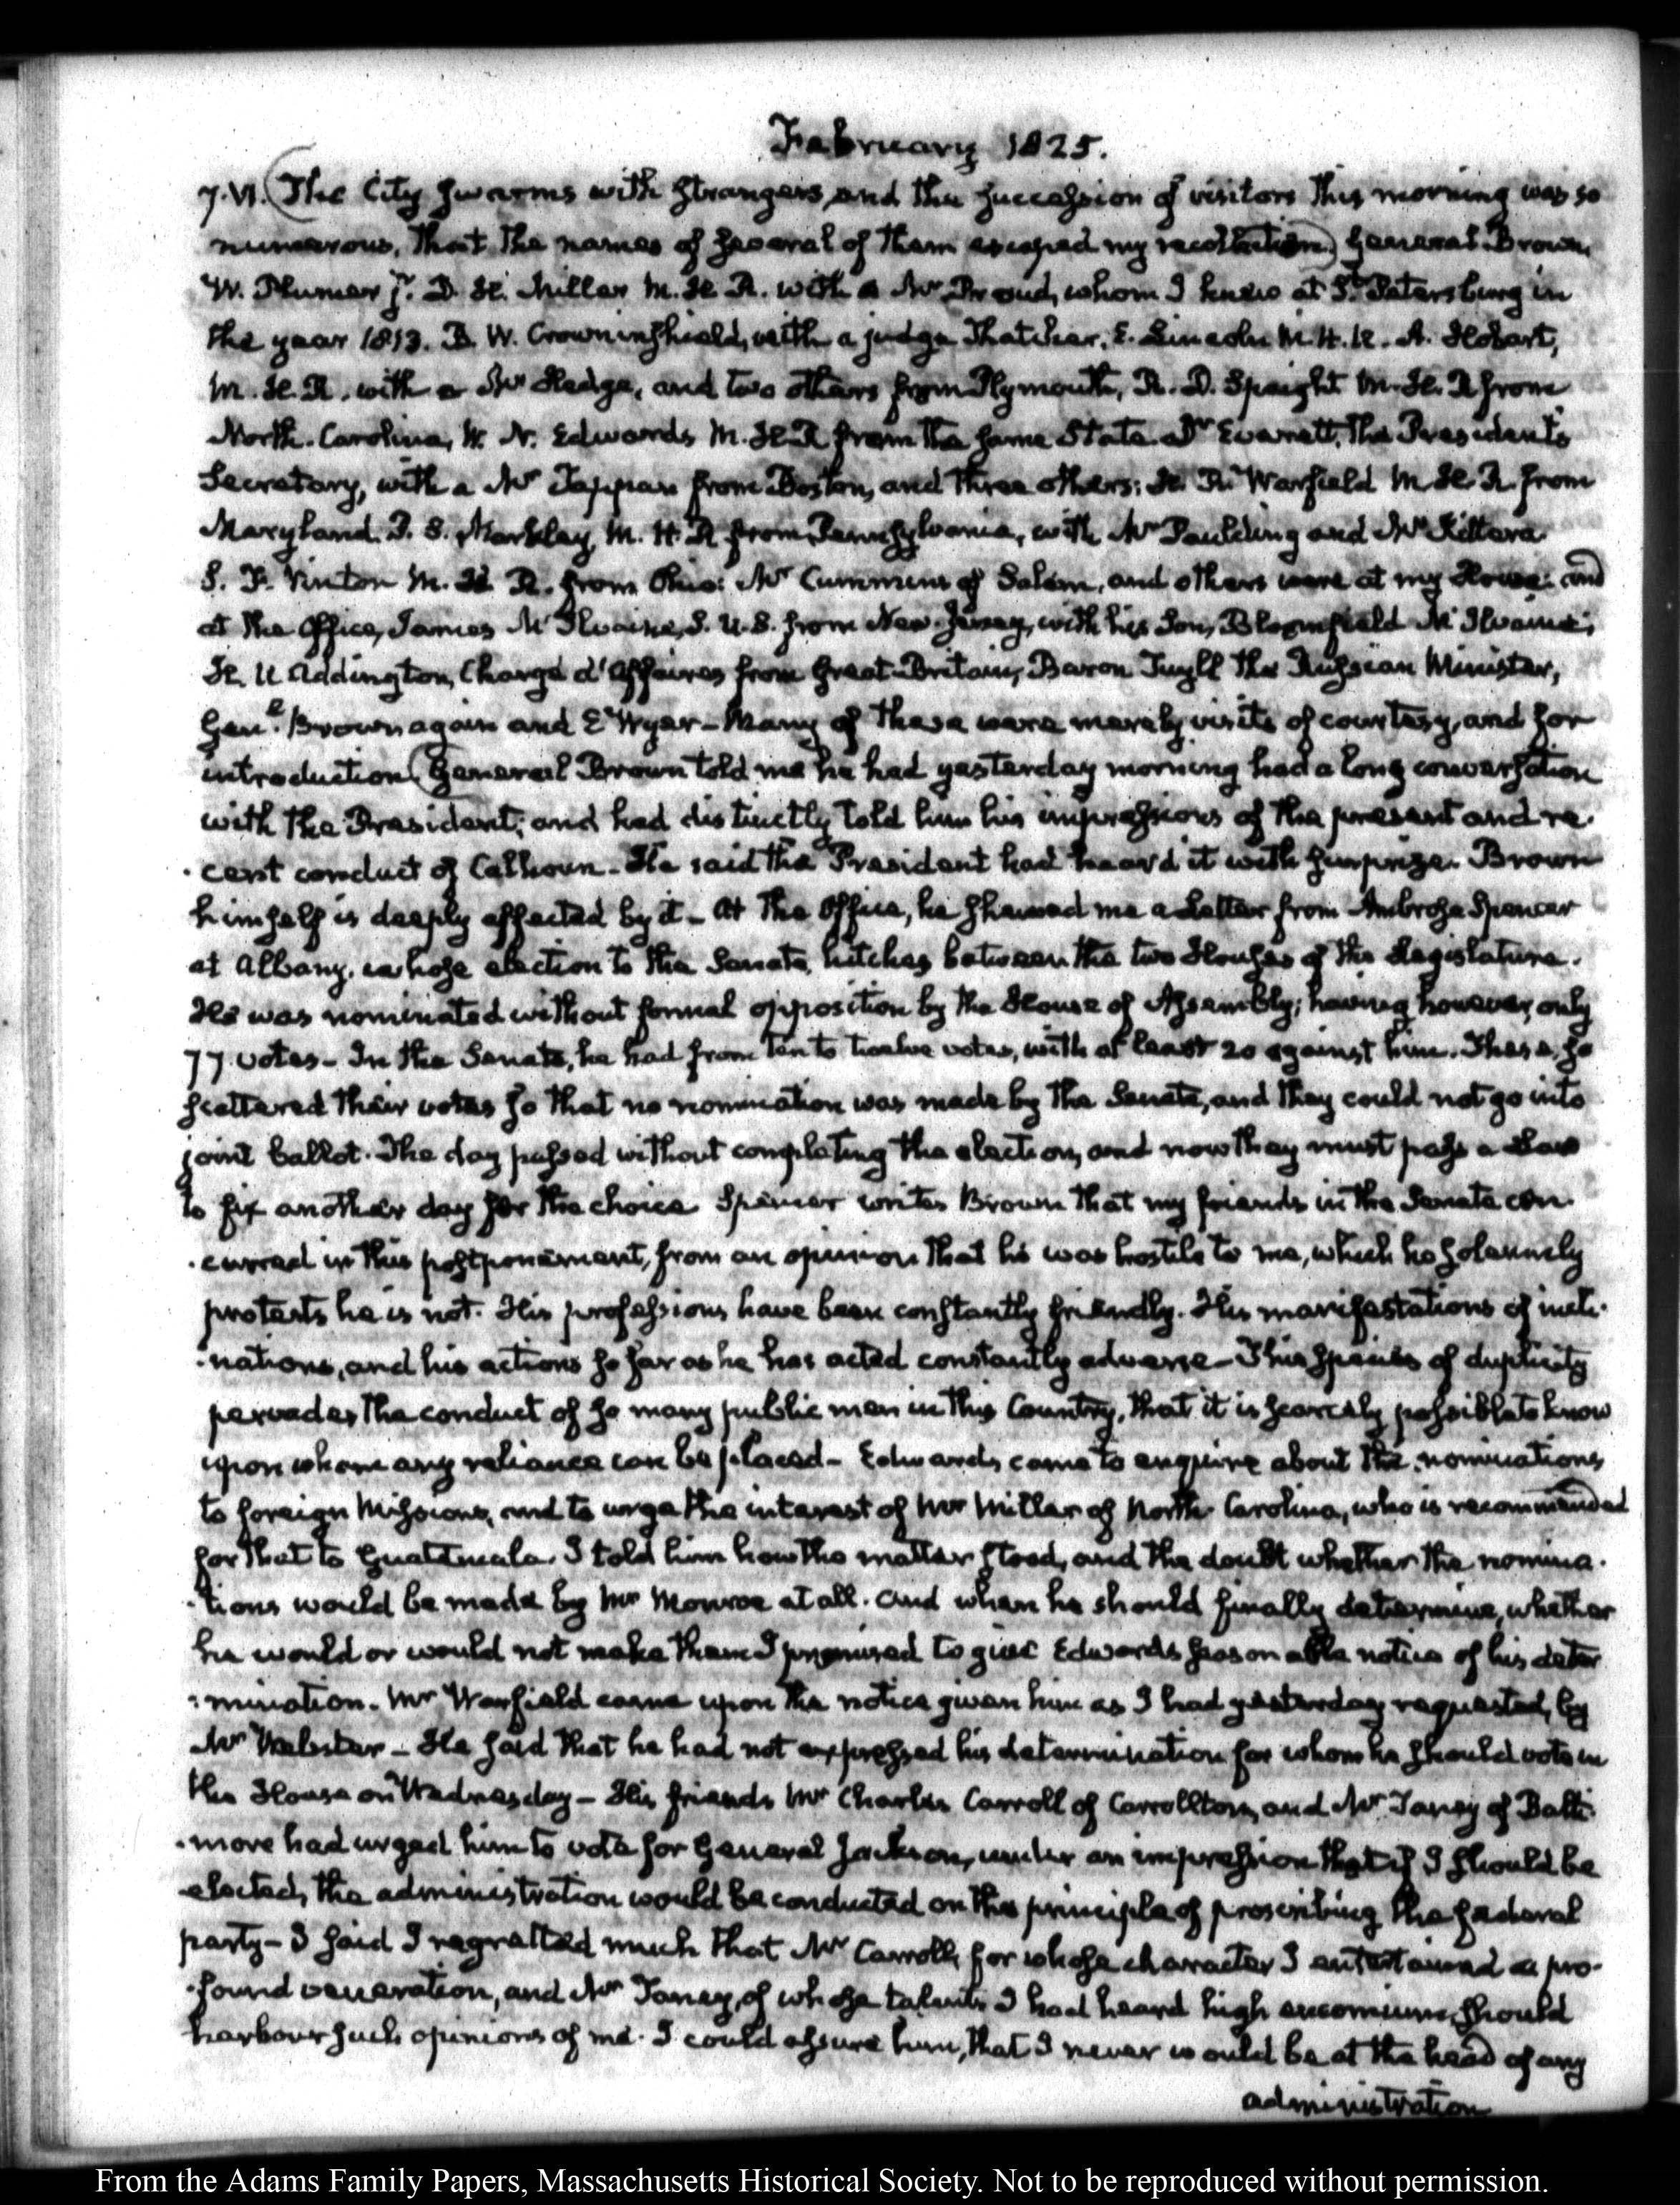 February 1825.
7. VI. The City swarms with strangers, and the succession of visitors this morning was so
numerous, that the names of several of them escaped my recollection. General Brown,
W. Plumer jr. D. H. Miller M. H. R. with a Mr. Proud, whom I knew at St. Petersburg in
the year 1813. B. W. Crowninshield, with a judge Thatcher, E. Lincoln M. H. R. A. Hobart,
M. H. R. with a Mr. Hedge, and two others from Plymouth, R. D. Spaight M. H. R from
North-Carolina, W. N. Edwards M. H. R from the same State. Dr Everett, the President's
Secretary, with a Mr Tappan from Boston, and three others: H. R. Warfield M. H. R. from
Maryland. P. S. Markley, M. H. R from Pennsylvania, with Mr Paulding and Mr Kittera
S. F. Vinton M. H. R. from Ohio: Mr Cummins of Salem, and others were at my House: and
at the Office, James McIlvaine, S. U. S. from New-Jersey, with his Son, Bloomfield McIlvaine;
H. U Addington, Chargé d'Affaires from Great-Britain, Baron Tuyll the Russian Minister,
Genl. Brown again and E Wyer — Many of these were merely visits of courtesy, and for
introduction. General Brown told me he had yesterday morning had a long conversation
with the President; and had distinctly told him his impressions of the present and re-
cent conduct of Calhoun — He said the President had heard it with surprize. Brown
himself is deeply affected by it — At the Office, he shewed me a Letter from Ambrose Spencer
at Albany, whose election to the Senate, hitches between the two Houses of the Legislature.
He was nominated without formal opposition by the House of Assembly; having however, only
77 votes — In the Senate, he had from ten to twelve votes, with at least 20 against him. These, so
scattered their votes so that no nomination was made by the Senate, and they could not go into
joint ballot. The day passed without completing the election, and now they must pass a Law
to fix another day for the choice. Spencer writes Brown that my friends in the Senate con-
curred in this postponement, from an opinion that he was hostile to me, which he solemnly
protests he is not. His professions have been constantly friendly. His manifestations of incli-
nations, and his actions so far as he has acted constantly adverse — This species of duplicity
pervades the conduct of so many public men in this Country, that it is scarcely possible to know
upon whom any reliance can be placed — Edwards came to enquire about the nominations
to foreign Missions, and to urge the interest of Mr Miller of North-Carolina, who is recommended
for that to Guatemala. I told him how the matter stood, and the doubt whether the nomina-
tions would be made by Mr Monroe at all. And when he should finally determine, whether
he would or would not make them I promised to give Edwards seasonable notice of his deter-
mination. Mr Warfield came upon the notice given him as I had yesterday requested, by
Mr Webster — He said that he had not expressed his determination for whom he should vote in
the House on Wednesday — His friends Mr Charles Carroll of Carrollton, and Mr Taney of Balti-
more had urged him to vote for General Jackson, under an impression that if I should be
elected, the administration would be conducted on the principle of proscribing the federal
party — I said I regretted much that Mr Carroll, for whose character I entertained a pro-
found veneration, and Mr Taney, of whose talents I had heard high encomiums, should
harbour such opinions of me. I could assure him, that I never would be at the head of any
administration
From the Adams Family Papers, Massachusetts Historical Society. Not to be reproduced without permission.